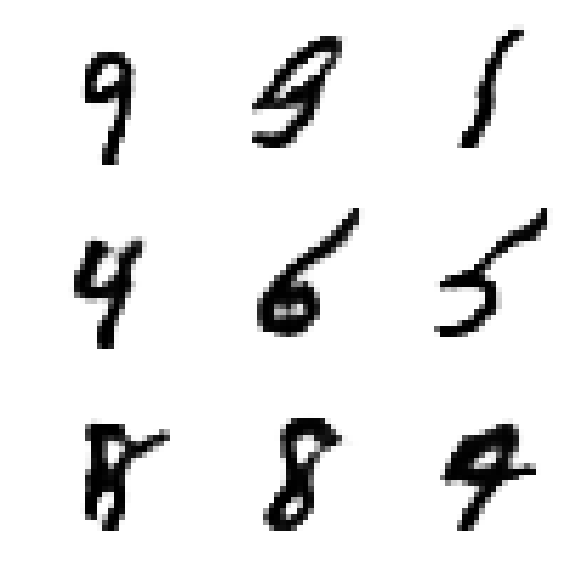 9 9 1
4 6 5
8 8 9